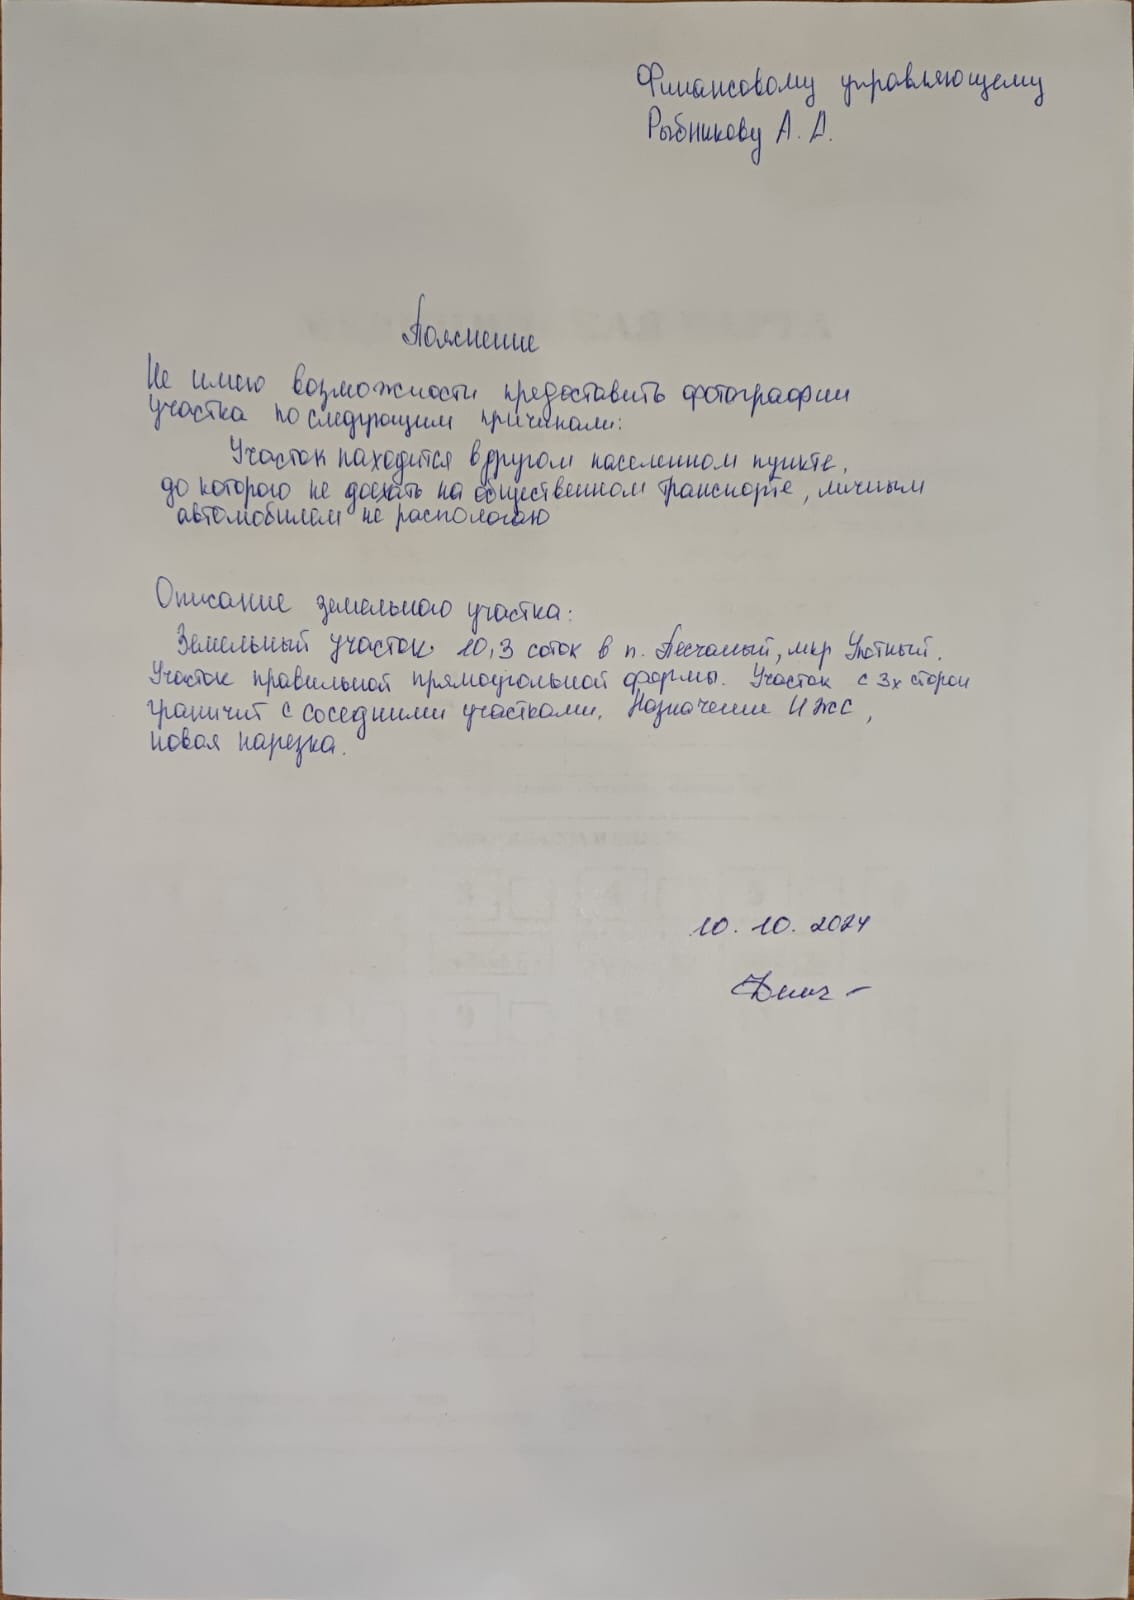 Финансовому управляющему
Рыбникову А. Д.
Пояснение
Не имею возможности предоставить фотографии
участка по следующим причинам:
Участок находится в другом населенном пункте,
до которого не доехать на общественном транспорте, личным
автомобилем не распологаю
Описание земельного участка:
Земельный участок 10,3 соток в п. Песчаный, мкр Уютный.
Участок правильной прямоугольной формы. Участок с 3х сторон
граничит с соседними участками. Назначение ИЖС,
новая нарезка.
10. 10. 2024